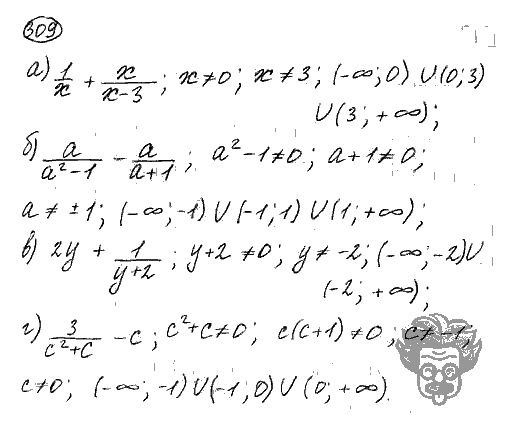 309
а) 1/x + x/(x-3); x≠0; x≠3; (-∞; 0) ∪ (0; 3)
∪ (3; +∞);
б) a/(a²-1) - a/(a+1); a²-1≠0; a+1≠0;
a ≠ ±1; (-∞; -1) ∪ (-1; 1) ∪ (1; +∞);
в) 2y + 1/(y+2); y+2 ≠0; y≠-2; (-∞; -2)∪
(-2; +∞);
г) 3/(c²+c) - c; c²+c≠0; c(c+1) ≠0; c≠-1;
c≠0; (-∞; -1) ∪ (-1; 0) ∪ (0; +∞)